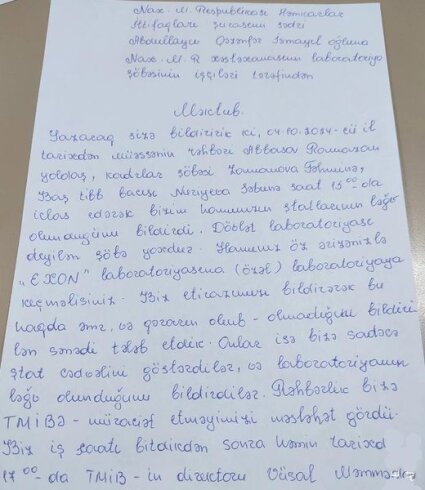 Nax. M. Respublikası Həmkarlar
İttifaqları Şurasının sədri
Abdullayev Qəzənfər İsmayıl oğluna
Nax. M. R xəstəxanasının laboratoriya
şöbəsinin işçiləri tərəfindən
Məktub.
Yazaraq sizə bildiririk ki, 04.10.2024-cü il
tarixdən müəssənin rəhbəri Abbasov Ramazan
yoldaş, kadrlar şöbəsi Zamanova Təhminə,
Baş tibb bacısı Nuriyeva Səbinə saat 15⁰⁰-da
iclas edərək bizim hamımızın ştatlarının ləğv
olunduğunu bildirdi. Dövlət laboratoriyası
deyilən şöbə yoxdur. Hamınız öz ərizənizlə
„EXON" laboratoriyasına (özəl) laboratoriyaya
keçməlisiniz. Biz etirazımızı bildirərək bu
haqda əmr, və qərarın olub-olmadığını bildiri
lən sənədi tələb etdik. Onlar isə bizə sadəcə
ştat cədvəlini göstərdilər, və laboratoriyanın
ləğv olunduğunu bildirdilər. Rəhbərlik bizə
TMİBƏ - müraciət etməyimizi məsləhət gördü.
Biz iş saatı bitdikdən sonra həmin tarixdə
17⁰⁰-da TMİB-in direktoru Vüsal Məmmədov